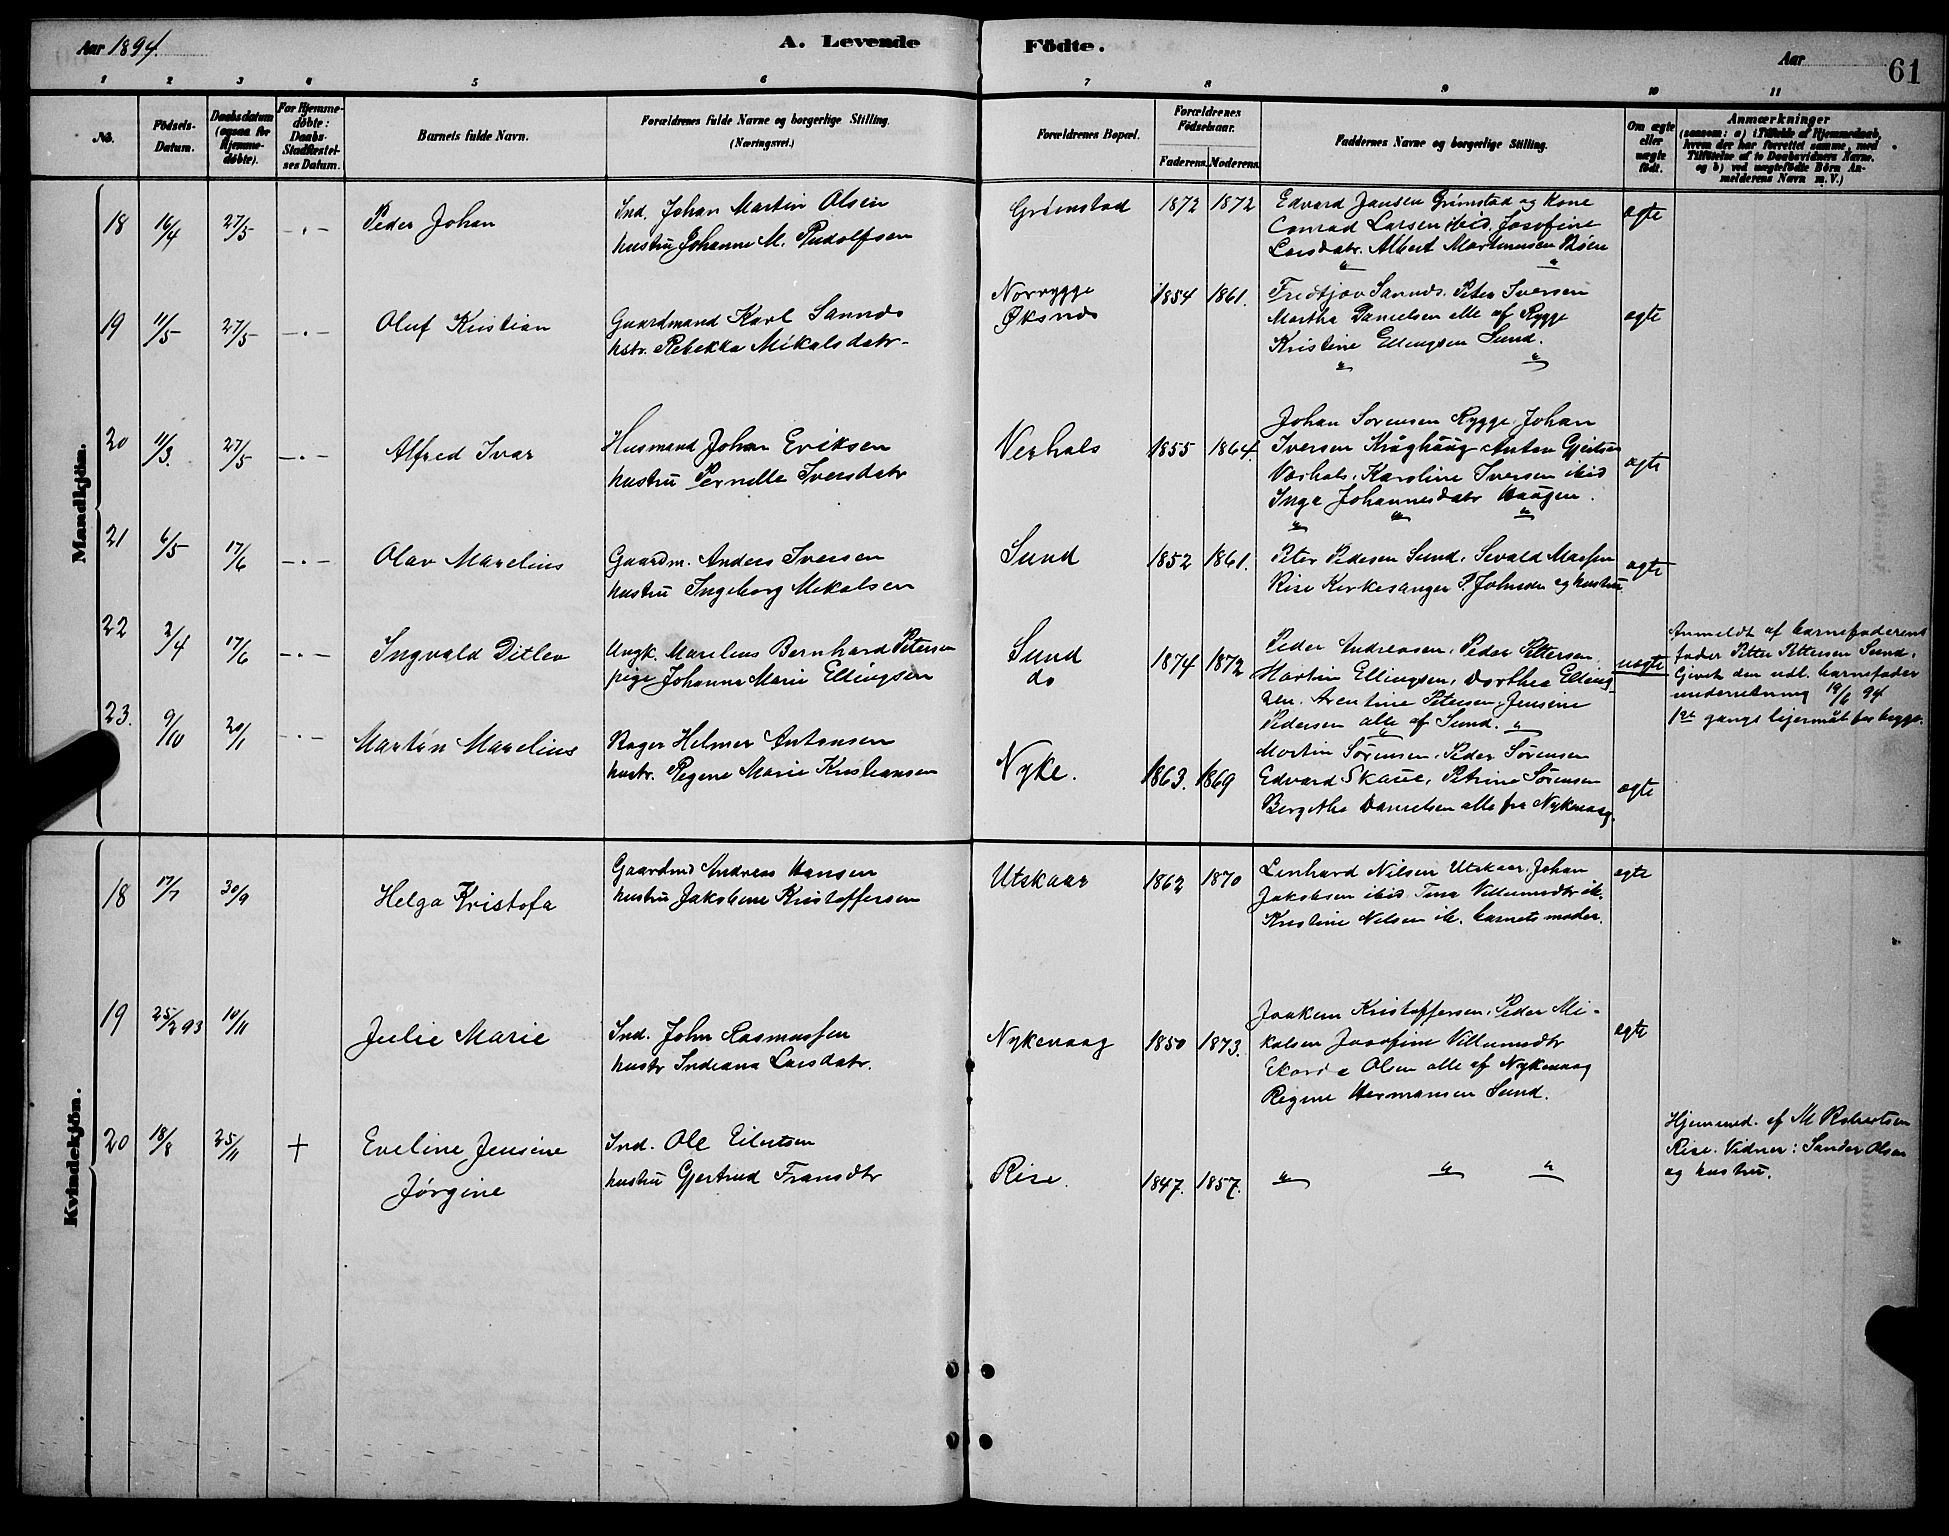 Aar 1894.
A. Levende Födte.
Aar
61
1 2 3 4 5 6 7 8 9 10 11
No.
Födsels-
Datum.
Daabsdatum
(ogsaa for
Hjemme-
döbte).
For Hjemme-
døbte:
Daabs-
Stadfæstel-
ses Datum.
Barnets fulde Navn.
Forældrenes fulde Navne og borgerlige Stilling.
(Næringsvei.)
Forældrenes Bopæl.
Forældrenes
Födselsaar.
Faderens. Moderens.
Faddernes Navne og borgerlige Stilling.
Om ægte
eller
uægte
födt.
Anmærkninger
(saasom: a) i Tilfælde af Hjemmedaab,
hvem der har forrettet samme, med
Tilföielse af to Daabsvidners Navne,
og b) ved uægtefödte Börn An-
melderens Navn m. V.)
Mandkjön.
18 16/4 27/5 - . - Peder Johan
Ind. Johan Martin Olsen
hustru Johanne M. Rudolfsen
Grimstad 1872 1872
Edvard Jansen Grimstad og Kone
Conrad Larsen ibid. Josefine
Larsdatr. Albert Martinussen Böen
ægte
19 11/5 27/5 - . - Oluf Kristian
Gaardmand Karl Sannds
hstr. Rebekka Mikalsdatr.
Norrygge
Øksnds
1854 1861.
Fredtjov Sannds. Peter Iversen
Martha Danielsen alle af Rygge
Kristine Ellingsen Sund.
ægte
20 11/3. 27/5 - . - Alfred Ivar
Husmand Johan Eriksen
hustru Pernelle Iversdatr
Verhals 1855 1864.
Johan Sørensen Rygge, Johan
Iversen Kråghaug Anton Gjertsen
Vorhals, Karoline Iversen ibid
Inga Johannesdatr Haugen.
ægte
21 6/5 17/6 - . - Olav Marelius
Gaardm. Anders Iversen
hustru Ingeborg Mikalsen
Sund 1852 1861.
Peter Pedersen Sund. Sevald Marsen
Rise Kirkesanger P. Johnsen og hustru
ægte
22 2/4 17/6 - . - Ingvald Ditlev
Ungk. Marelius Bernhard Petersen
pige Johanna Marie Ellingsen
Sund
do
1874 1872
Peder Andreasen, Peder Pettersen
Martin Ellingsen, Dorthea Elling-
sen. Arentine Petersen, Jensine
Pedersen alle af Sund.
uægte
Anmeldt af barnefaderens
fader Petter Pettersen Sund.
Givet den udl. barnefader
underretning 19/6 94
1ste gangs lejermål for begge.
23. 9/10 20/1 - . - Martin Marelius
Roger Helmer Antonsen
hustr. Regine Marie Kristiansen
Nyke. 1863. 1869
Martin Sørensen. Peder Sørensen
Edvard Skaue, Petrine Sörensen
Bergithe Danielsen alle fra Nykvaag.
ægte
Kvindekjön.
18 17/7 30/9 Helga Kristofa
Gaardmd Andreas Hansen
hustru Jakobine Kristoffersen
Utskaar 1862 1870
Lenhard Nilsen Utskaar, Johan
Jakobsen ibid. Tina Villumsdtr ib.
Kristine Nilsen ib. barnets moder.
ægte
19 25/2 93 10/11 Julie Marie
Ind. John Rasmussen
hustr Indiana Larsdatr.
Nykevaag 1850 1873.
Joakim Kristoffersen. Peder Mi-
kalsen Josefine Villumsdtr
Ekarda Olsen alle af Nykevaag
Regine Hermansen Sund.
ægte
20 18/8 25/11 + Eveline Jensine
Jørgine
Ind. Ole Eilertsen
hustru Gjertrud Fransdtr
Rise. 1847. 1857.
" " "
Hjemmed. af M Robertsen
Rise. Vidner: Sander Olsen
og hustru.